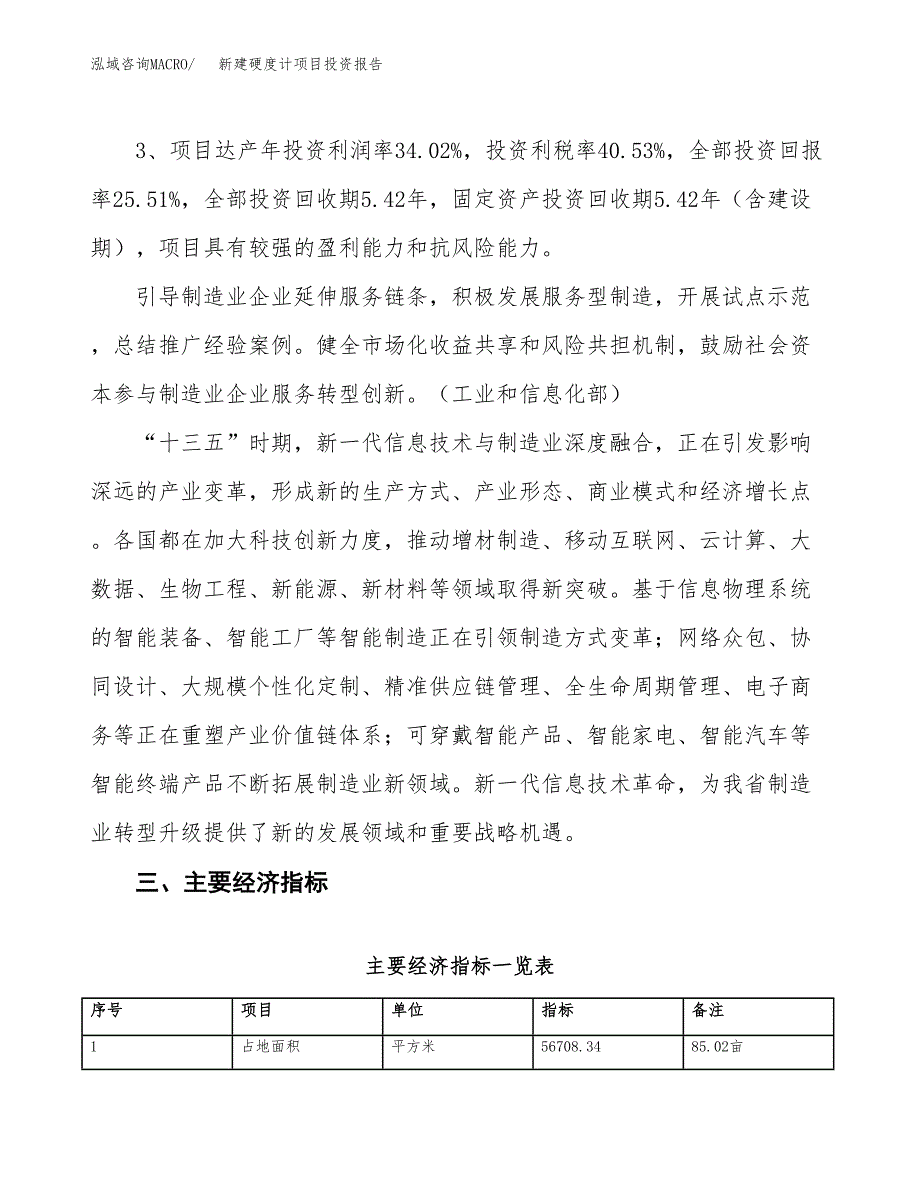 泓域咨询MACRO/ 新建硬度计项目投资报告
3、项目达产年投资利润率34.02%，投资利税率40.53%，全部投资回报
率25.51%，全部投资回收期5.42年，固定资产投资回收期5.42年（含建设
期），项目具有较强的盈利能力和抗风险能力。
引导制造业企业延伸服务链条，积极发展服务型制造，开展试点示范
，总结推广经验案例。健全市场化收益共享和风险共担机制，鼓励社会资
本参与制造业企业服务转型创新。（工业和信息化部）
“十三五”时期，新一代信息技术与制造业深度融合，正在引发影响
深远的产业变革，形成新的生产方式、产业形态、商业模式和经济增长点
。各国都在加大科技创新力度，推动增材制造、移动互联网、云计算、大
数据、生物工程、新能源、新材料等领域取得新突破。基于信息物理系统
的智能装备、智能工厂等智能制造正在引领制造方式变革；网络众包、协
同设计、大规模个性化定制、精准供应链管理、全生命周期管理、电子商
务等正在重塑产业价值链体系；可穿戴智能产品、智能家电、智能汽车等
智能终端产品不断拓展制造业新领域。新一代信息技术革命，为我省制造
业转型升级提供了新的发展领域和重要战略机遇。
三、主要经济指标
主要经济指标一览表
序号 项目 单位 指标 备注
1 占地面积 平方米 56708.34 85.02亩